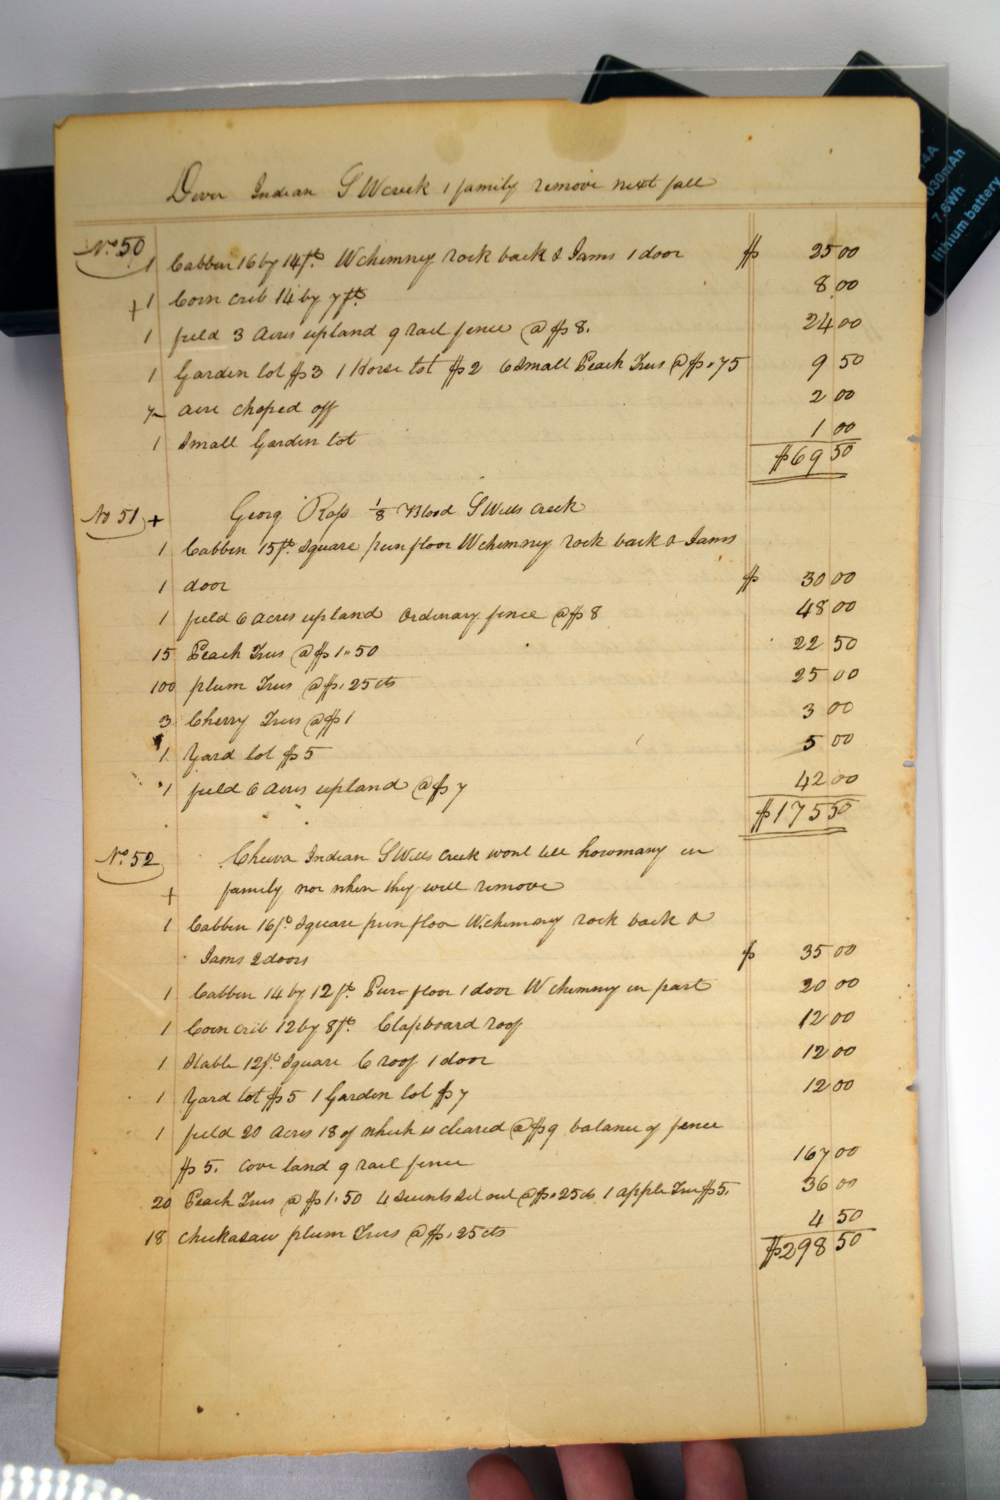 Dever Indian S W creek 1 family remove next fall
No. 50
1 Cabben 16 by 14 ft. W chimney rock back & Jams 1 door $ 25 00
+ 1 Corn crib 14 by 7 ft. 8.00
1 field 3 Acres upland 9 rail fence @ $8. 24 00
1 Garden lot $3 1 Horse lot $2 6 small Peach Trees @ $.75 9 50
acre choped off 2 00
1 Small Garden lot 1 00
$69 50
No 51 + Georg Ross 1/8 Blood S Wills Creek
1 Cabben 15 ft. Square pun floor W chimney rock back & Jams
1 door $ 30 00
1 field 6 acres upland ordinary fence @ $8 48 00
15 Peach Trees @ $1.50 22 50
100 plum Trees @ $.25 cts 25 00
3 Cherry Trees @ $1 3 00
1 Yard lot $5 5 00
1 field 6 Acres upland @ $7 42 00
$175 50
No. 52 Indian S Wills Creek wont tell howmany in
+ family nor when they will remove
1 Cabben 16 ft. Square pun floor W chimney rock back &
Jams 2 doors $ 35 00
1 Cabben 14 by 12 ft. Pun floor 1 door W chimney in part 20 00
1 Corn crib 12 by 8 ft. Clapboard roof 12 00
1 Stable 12 ft. Square C roof 1 door 12 00
1 Yard lot $5 1 Garden lot $7 12 00
1 field 20 Acres 18 of which is cleared @ $9 balance of fence
$5. cove land 9 rail fence 167 00
20 Peach Trees @ $1.50 4 set out @ $.25 cts 1 apple Tree $5. 36 00
18 chickasaw plum Trees @ $.25 cts 4 50
$298 50
4A
030mAh
7.6Wh
lithium battery